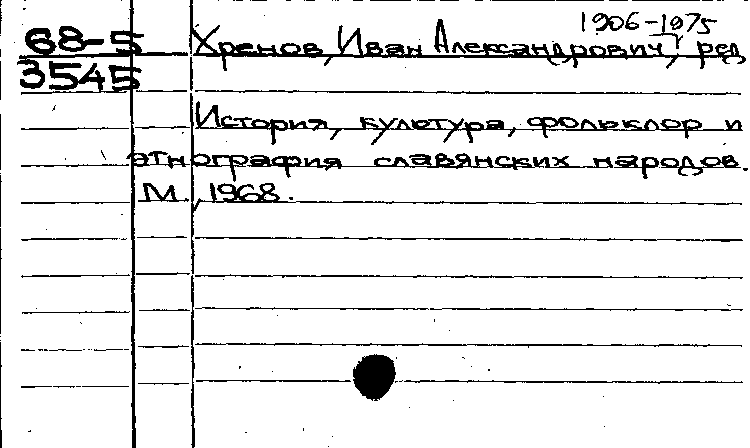 1906-1975
68-5 Хренов, Иван Александрович, ред.
3545
История, культура, фольклор и
этнография славянских народов.
М., 1968.